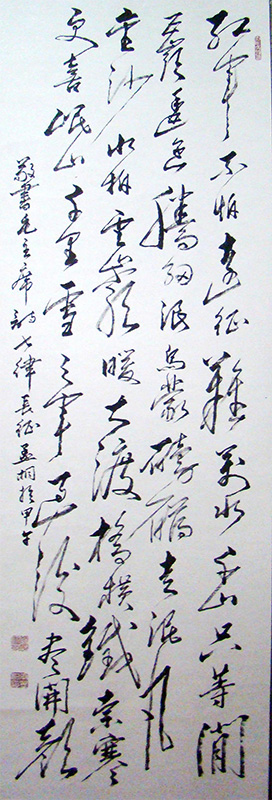 紅軍不怕遠征難萬水千山只等閒
五嶺逶迤騰細浪烏蒙磅礴走泥丸
金沙水拍雲崖暖大渡橋橫鐵索寒
更喜岷山千里雪三軍過後盡開顏
敬書毛主席詩七律長征孟桐於甲午